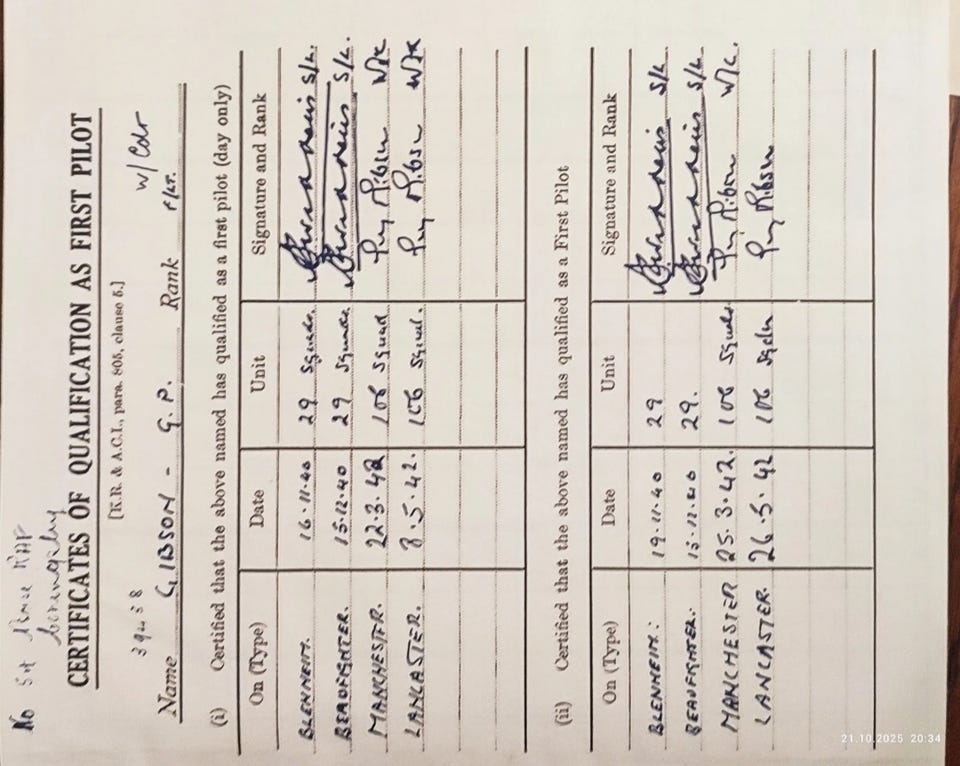 No
CERTIFICATES OF QUALIFICATION AS FIRST PILOT
[K.R. & A.C.I., para. 805, clause 5.]
W/Cdr
Name GIBSON - G.P. Rank F/LT.
(i) Certified that the above named has qualified as a first pilot (day only)
On (Type) Date Unit Signature and Rank
BLENHEIM. 16.11.40 29 S/L.
BEAUFIGHTER. 15.12.40 29 S/L.
MANCHESTER. 22.3.42 106 Guy Gibson W/C
LANCASTER. 8.5.42. 106 Guy Gibson W/C
(ii) Certified that the above named has qualified as a First Pilot
On (Type) Date Unit Signature and Rank
BLENHEIM: 19.11.40 29 S/L
BEAUFIGHTER. 15.12.40 29. S/L
MANCHESTER 25.3.42. 106 Guy Gibson W/C.
LANCASTER. 26.5.42 106 Guy Gibson
21.10.2025 20:34